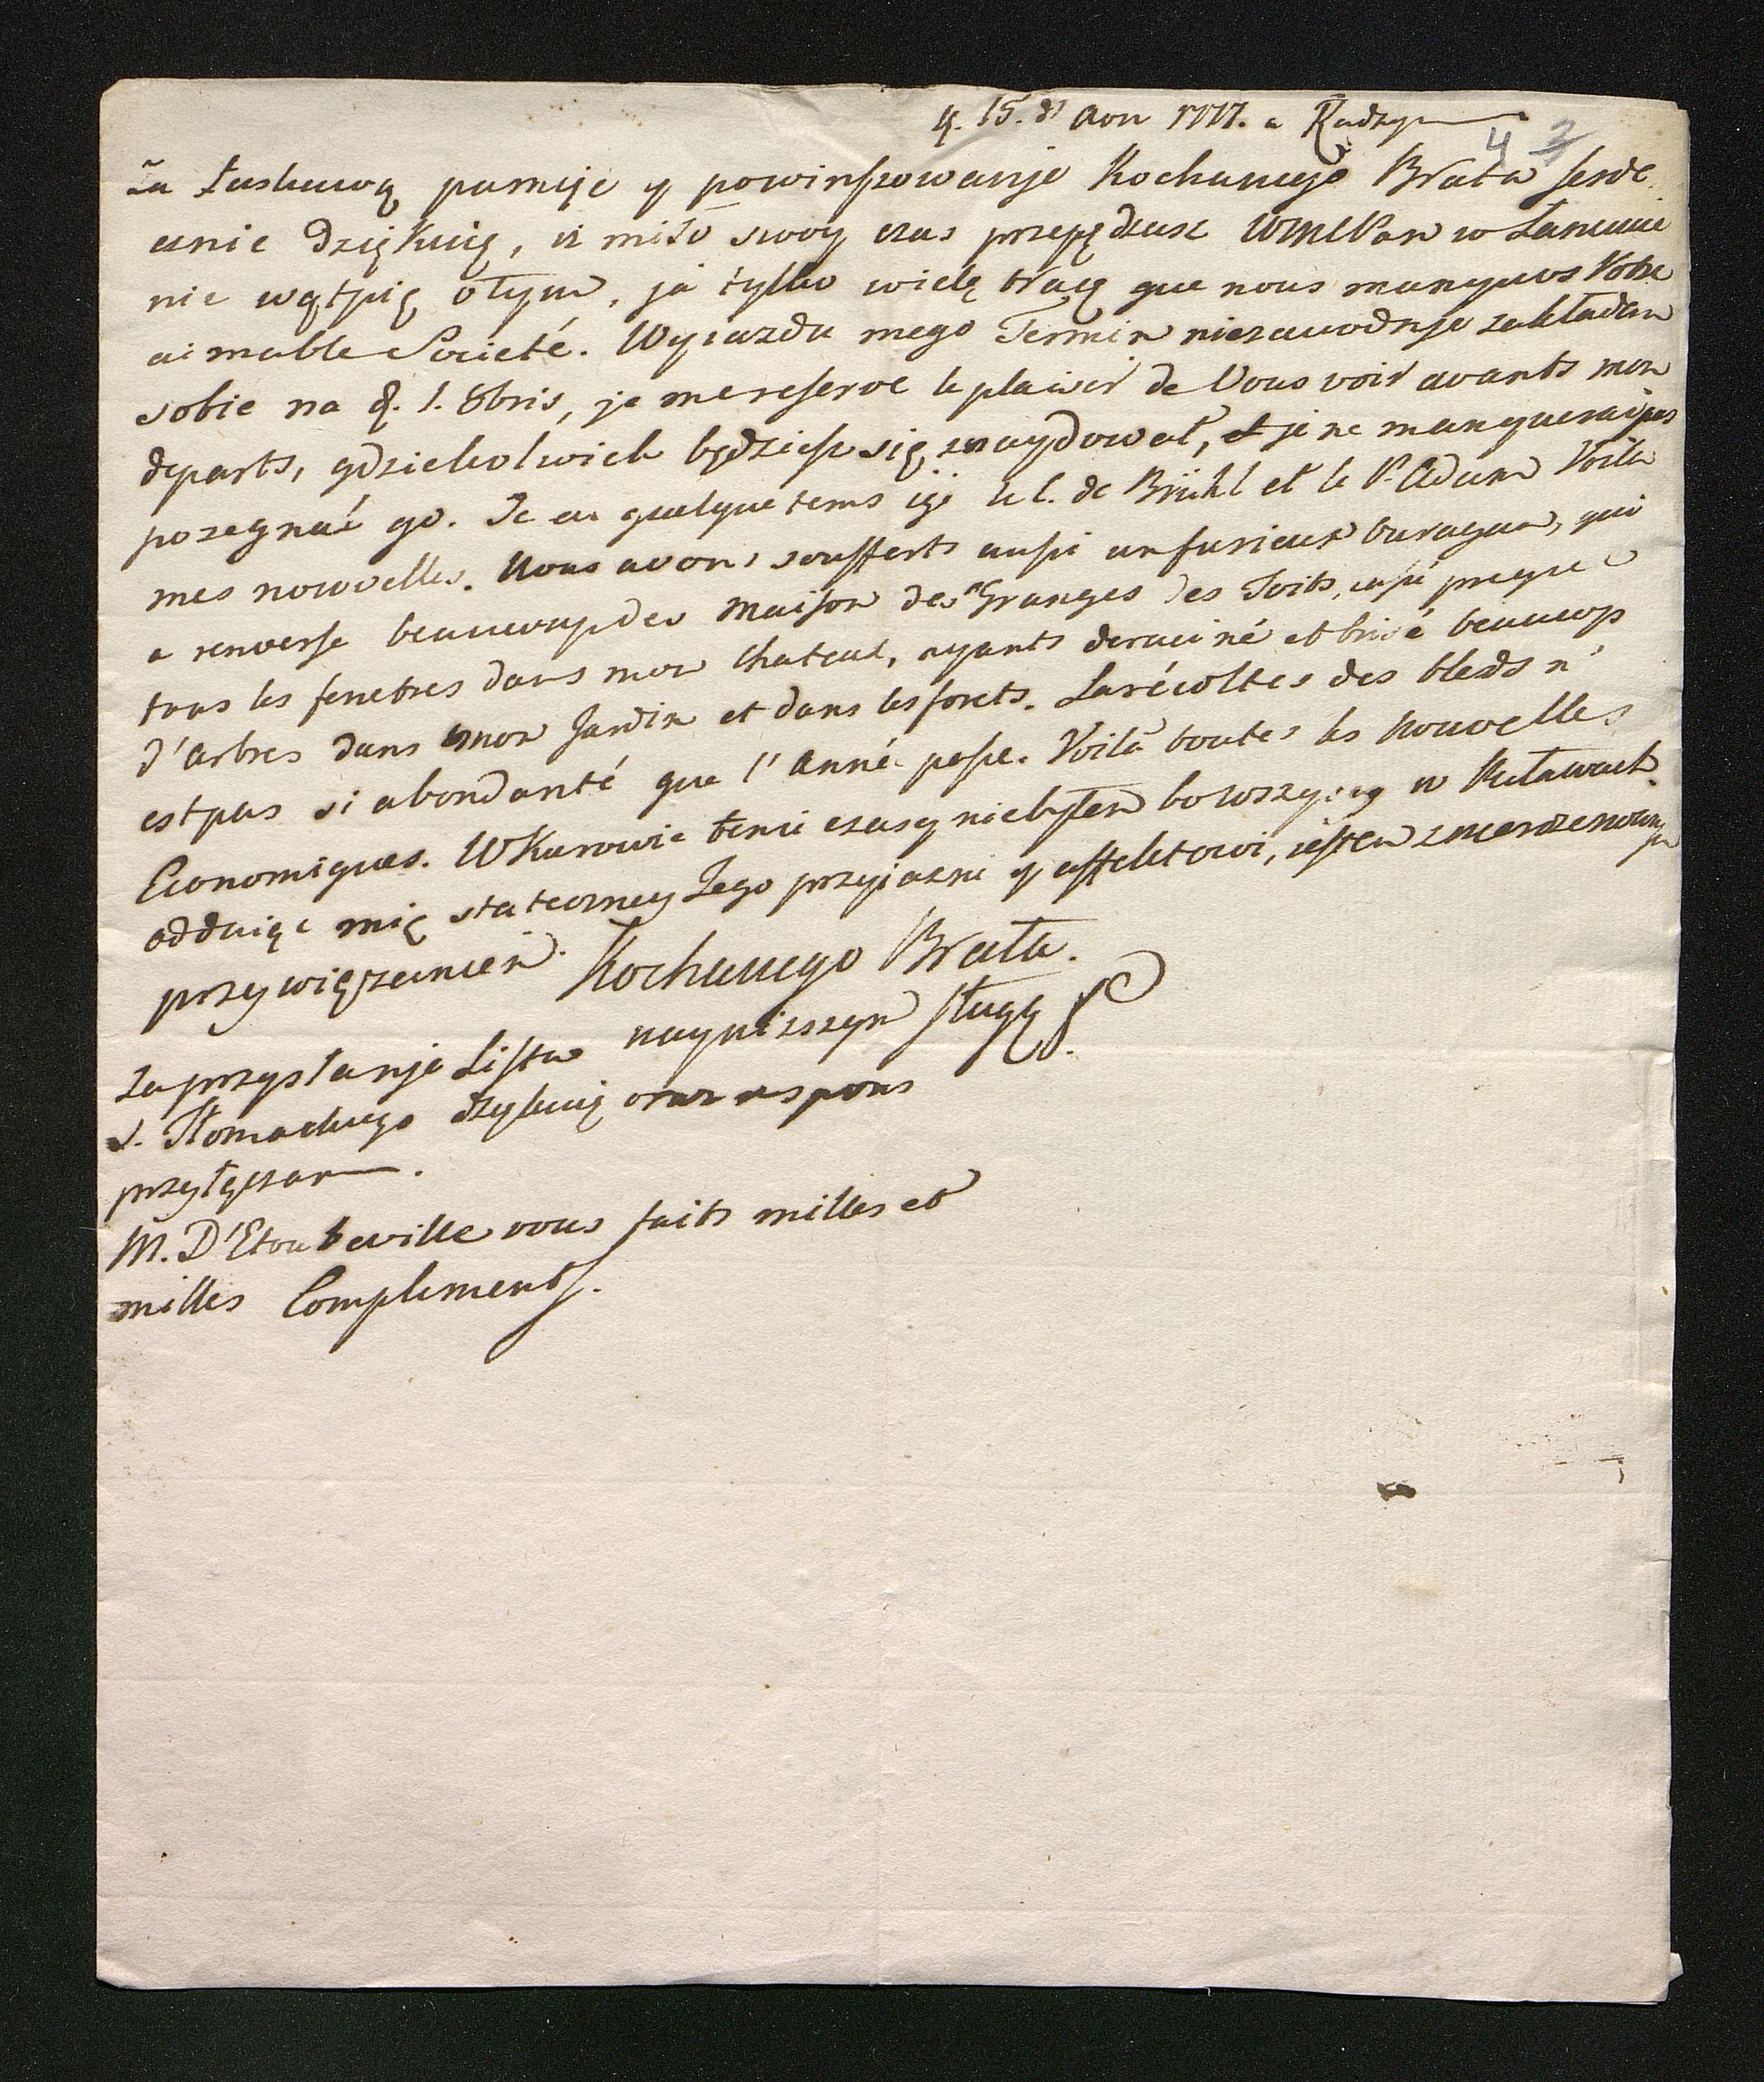 d. 15. d' Aou 1777. a Radzyn
4 3
Za Łaskawą pamięc y powinszowanje Kochanego Brata serde
cznie Dziękuię, iż miło swoy czas przepędzasz WMWPan w Łancucie
nie wątpię o tym, ja tylko wielę tracę que nous manquons Votre
aimable Societé. Wyiazdu mego Termin niezawodnje zakładam
sobie na d. 1. 8bris, je me reserve le plaisir de Vous voir avants mon
departs, gdziekolwiek będziesz się znaydował, et je ne manquerai pas
pozegnać go. Je eu quelque tems içi le C. de Brühl et le P. Adam Voila
mes nouvelles. Nous avons soufferts aussi un furieux ouragan, qui
a renverse beaucoup des Maison des Granges des Toits, cassé preque
tous les fenetres dans mon Chateau, ayants deraciné et brisé beaucoup
d'arbres dans mon Jardin et dans les forets. La récoltes des bleds n'
est pas si abondanté que l'Année passe. Voilà toutes les Nouvelles
Economiques. W Kurowie temi czasy niebyłem bo wszyscy w Puławach.
oddaiąc mię stateczney Jego przyiazni y affektowi, jestem z nieodmiennym
przywiązaniem. Kochanego Brata.
nayniższym sługą
Za przysłanje Listu
S. Tłomackiego dzękuię oraz respons
przyłączam.
M. D'Etouteville vous faits milles et
milles Compliments.